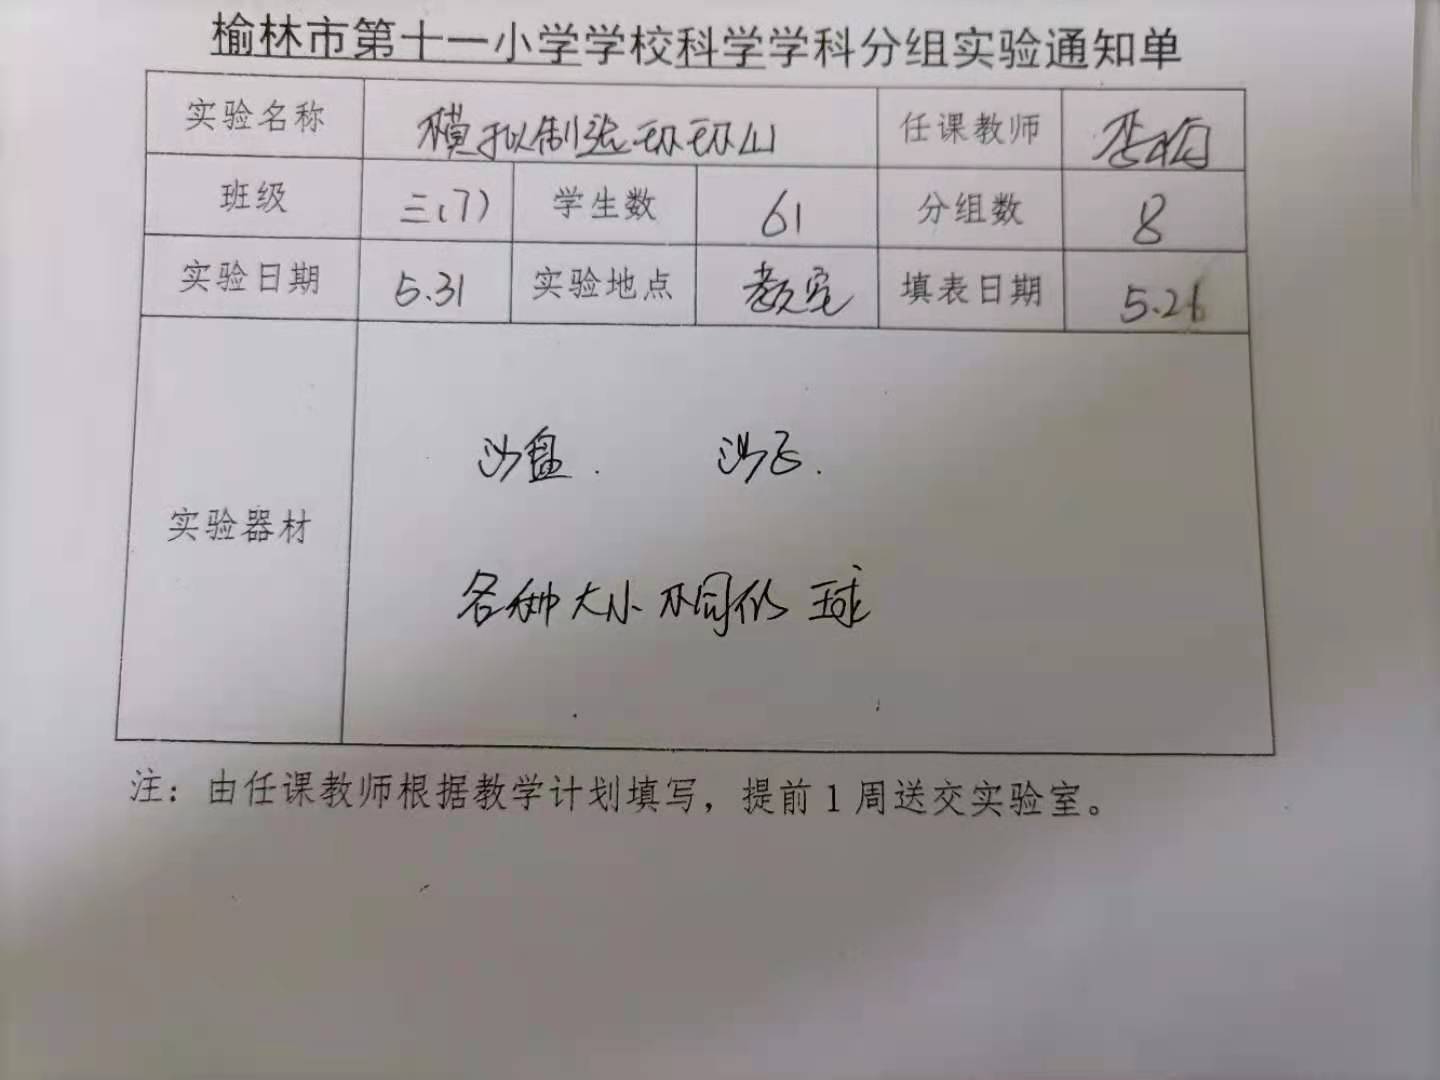 榆林市第十一小学学校科学学科分组实验通知单
实验名称 模拟制造环形山 任课教师
班级 三(7) 学生数 61 分组数 8
实验日期 5.31 实验地点 教室 填表日期 5.26
沙盘. 沙子.
实验器材
各种大小不同的球
注：由任课教师根据教学计划填写，提前1周送交实验室。